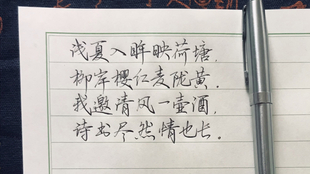 浅夏入眸映荷塘，
柳岸樱红麦陇黄，
我邀清风一壶酒，
诗书尽然情也长。